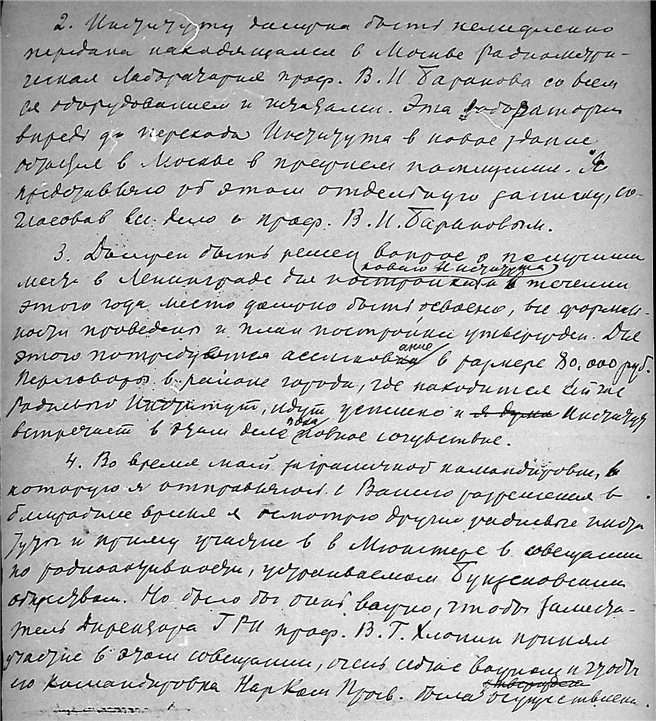 2. Институту должна быть немедленно
передана находящаяся в Москве Радиометри-
ческая Лаборатория проф. В. И. Баранова со всем
ея оборудованием и штатами. Эта лаборатория
впредь до перехода Института в новое здание
остается в Москве в прежнем помещении. Я
представляю об этом отдельную записку, со-
гласовав все дело с проф. В. И. Барановым.
3. Должен быть решен вопрос о получении
места в Ленинграде для постройки нового Института в течении
этого года место должно быть освоено, все формаль-
ности проведены и план постройки утвержден. Для
этого потребуется ассигнование в размере 80.000 руб.
Переговоры в районе города, где находится сейчас
Радиевый Институт, идут успешно и я думаю Институт
встречает в этом деле полное сочувствие.
4. Во время моей заграничной командировки, в
которую я отправляюсь с Вашего разрешения в
ближайшее время я осмотрю другие радиевые инсти-
туты и приму участие в в Мюнстере в совещании
по радиоактивности, устраиваемом Бунзеновским
обществом. Но было бы очень важно, чтобы замести-
тель директора ГРИ проф. В. Г. Хлопин принял
участие в этом совещании, очень сейчас важном и чтобы
его командировка НарКом Прос. была осуществлена.